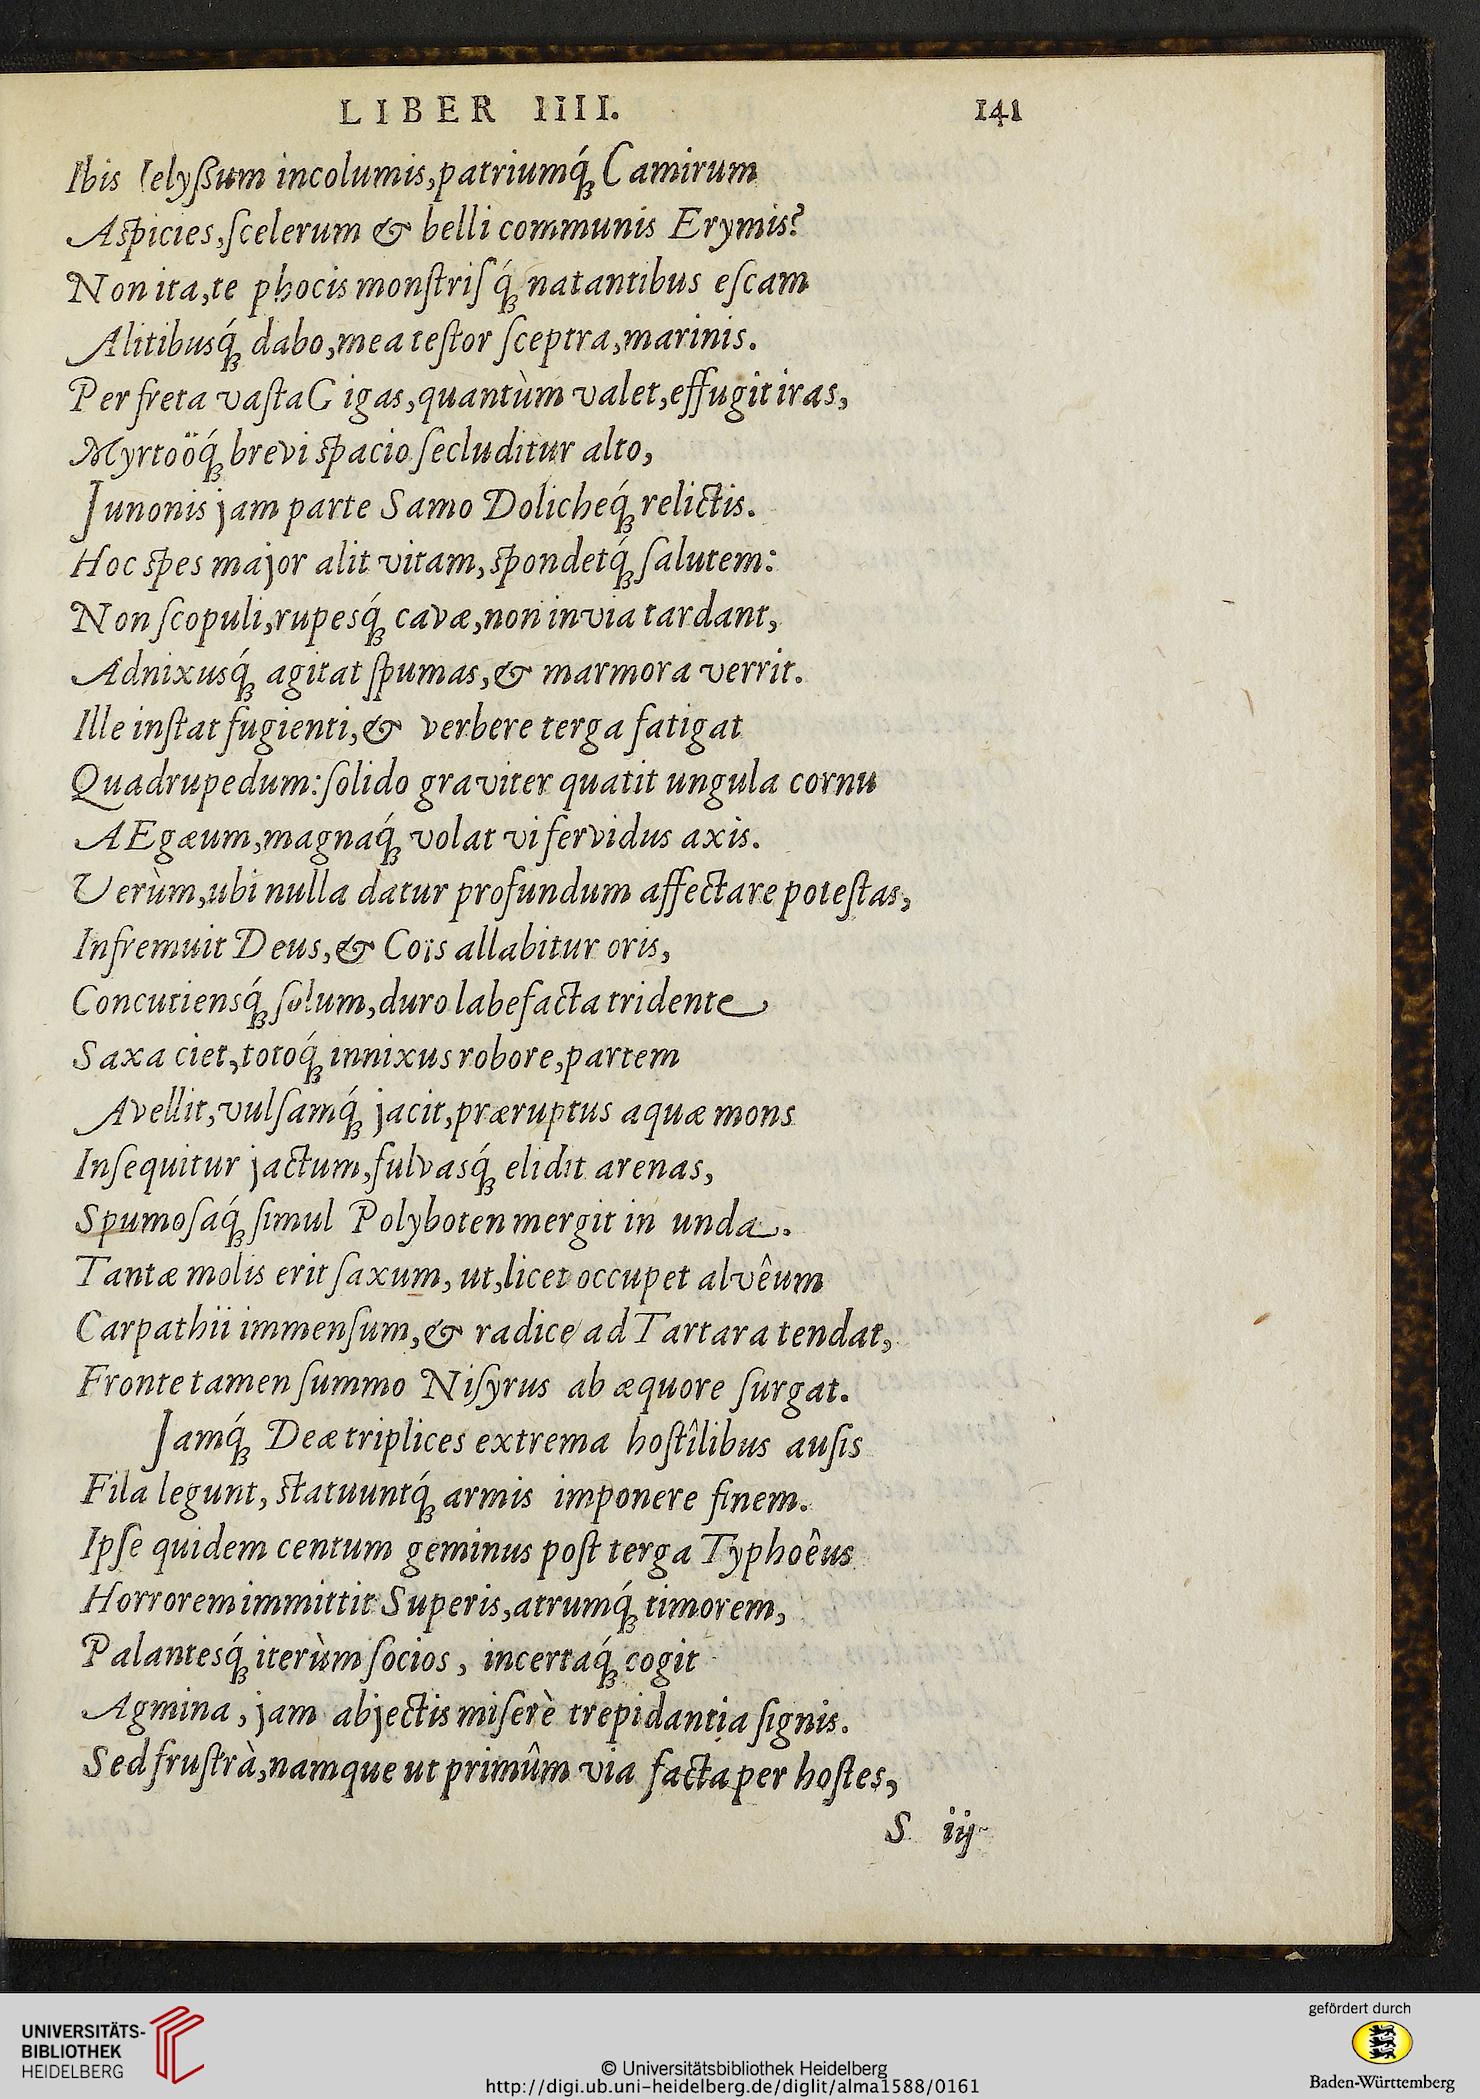 LIBER IIII. 141
Ibis Ielyßum incolumis, patriumq́; Camirum
Aspicies, ſcelerum & belli communis Erymis?
Non ita, te phocis monſtriſq́; natantibus eſcam
Alitibusq́; dabo, mea teſtor ſceptra, marinis.
Per freta vaſta Gigas, quantùm valet, effugit iras,
Myrtoöq́; brevi spacio ſecluditur alto,
Junonis jam parte Samo Dolicheq́; relictis.
Hoc spes major alit vitam, spondetq́; ſalutem:
Non ſcopuli, rupesq́; cavæ, non invia tardant,
Adnixusq́; agitat ſpumas, & marmora verrit.
Ille inſtat fugienti, & verbere terga fatigat
Quadrupedum: ſolido graviter quatit ungula cornu
AEgæum, magnaq́; volat vi fervidus axis.
Verùm, ubi nulla datur profundum affectare poteſtas,
Infremuit Deus, & Coïs allabitur oris,
Concutiensq́; ſolum, duro labefacta tridente
Saxa ciet, totoq́; innixus robore, partem
Avellit, vulſamq́; jacit, præruptus aquæ mons
Inſequitur jactum, fulvasq́; elidit arenas,
Spumoſaq́; ſimul Polyboten mergit in unda.
Tantæ molis erit ſaxum, ut, licet occupet alvêum
Carpathii immenſum, & radice ad Tartara tendat,
Fronte tamen ſummo Niſyrus ab æquore ſurgat.
Jamq́; Deæ triplices extrema hoſtîlibus auſis
Fila legunt, statuuntq́; armis imponere finem.
Ipſe quidem centum geminus poſt terga Typhoêus
Horrorem immittit Superis, atrumq́; timorem,
Palantesq́; iterùm ſocios, incertaq́; cogit
Agmina, jam abjectis miſerè trepidantia ſignis.
Sed fruſtrà, namque ut primûm via facta per hoſtes,
S iij
UNIVERSITÄTS-
BIBLIOTHEK
HEIDELBERG
© Universitätsbibliothek Heidelberg
http://digi.ub.uni-heidelberg.de/diglit/alma1588/0161
gefördert durch
Baden-Württemberg